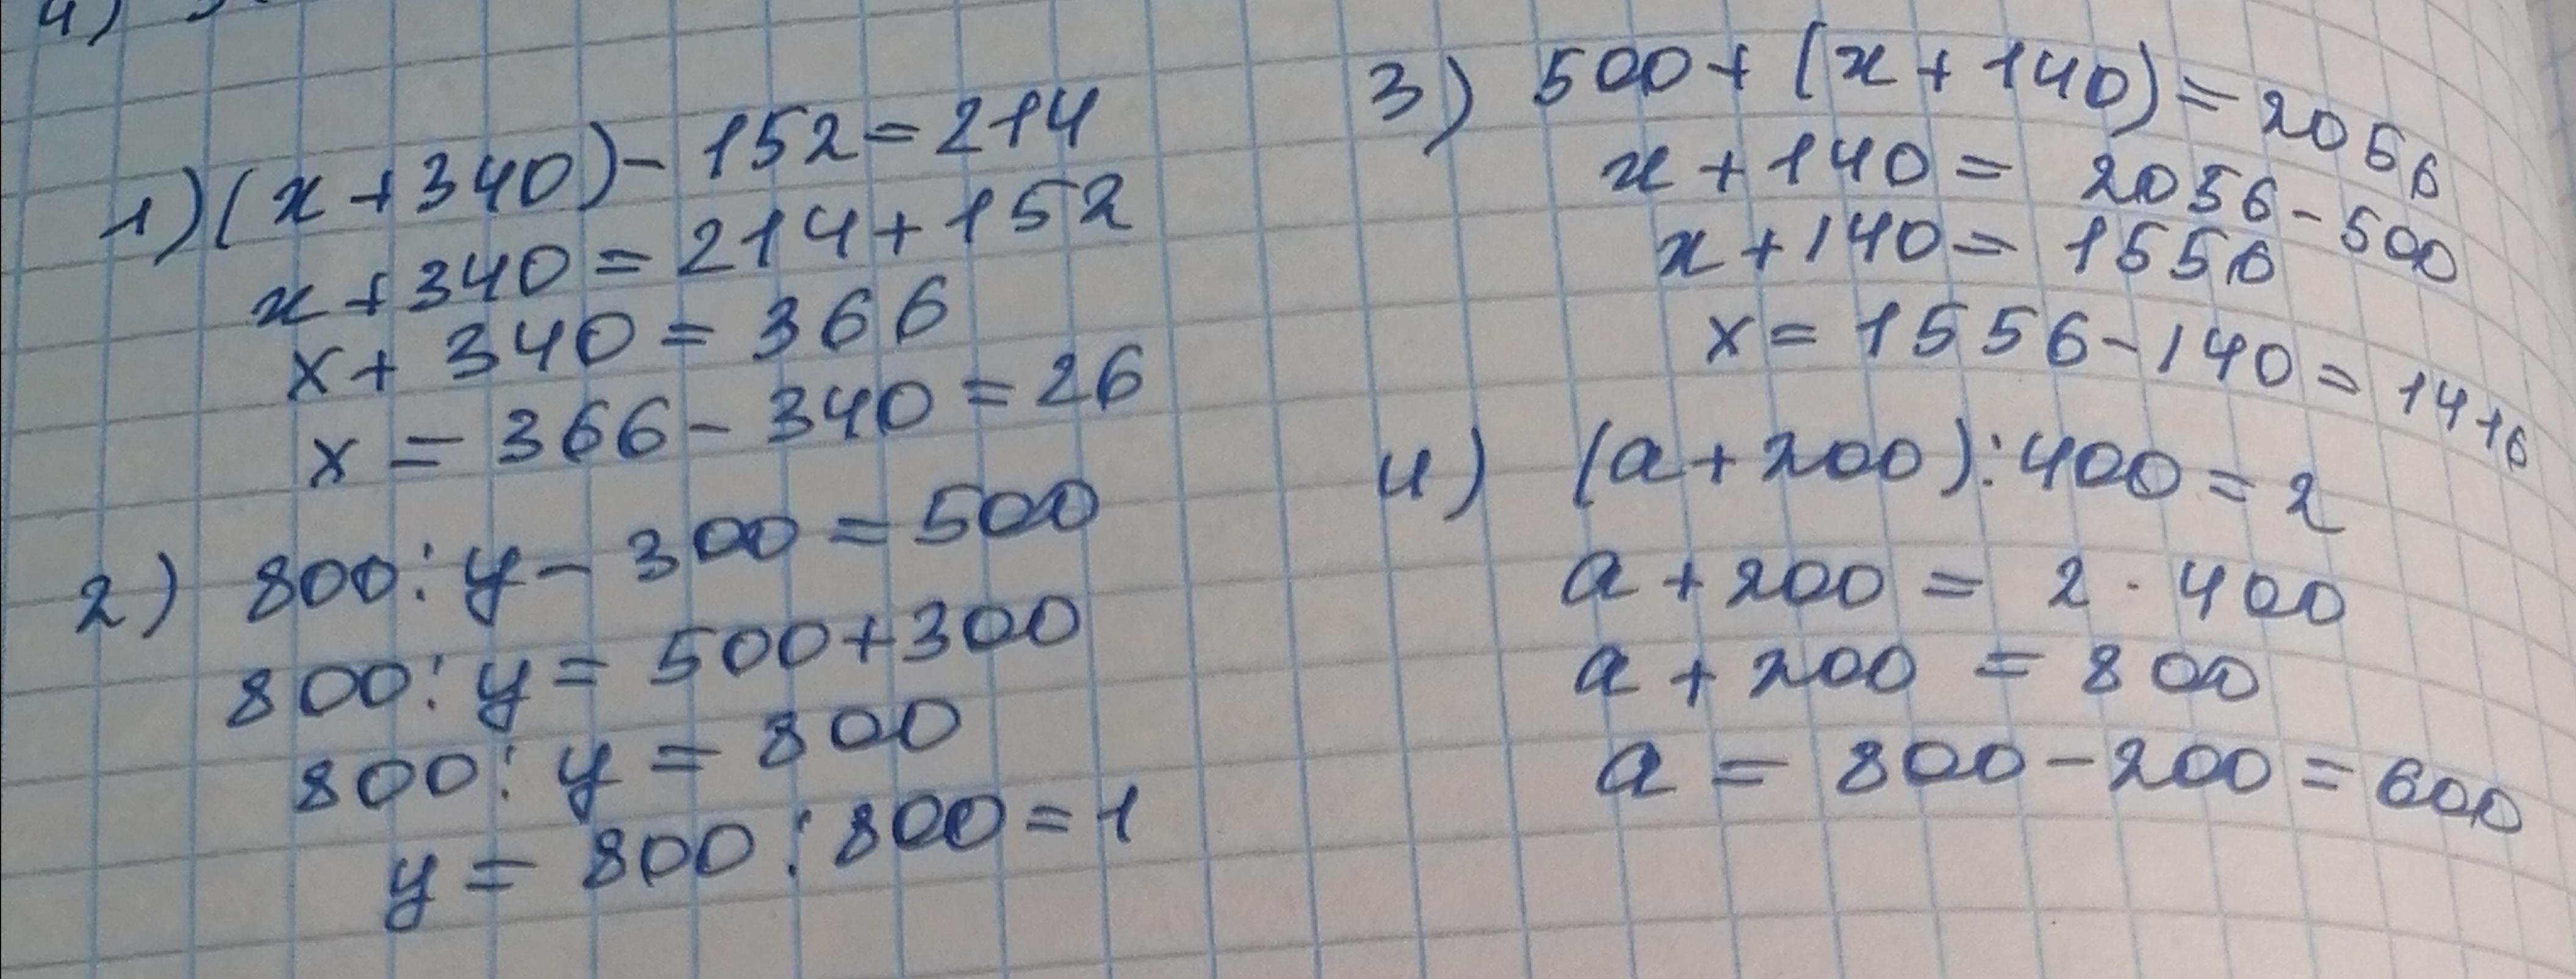 4)
1) (x + 340) - 152 = 214
x + 340 = 214 + 152
x + 340 = 366
x = 366 - 340 = 26
2) 800 : y - 300 = 500
800 : y = 500 + 300
800 : y = 800
y = 800 : 800 = 1
3) 500 + (x + 140) = 2056
x + 140 = 2056 - 500
x + 140 = 1556
x = 1556 - 140 = 1416
4) (a + 200) : 400 = 2
a + 200 = 2 · 400
a + 200 = 800
a = 800 - 200 = 600